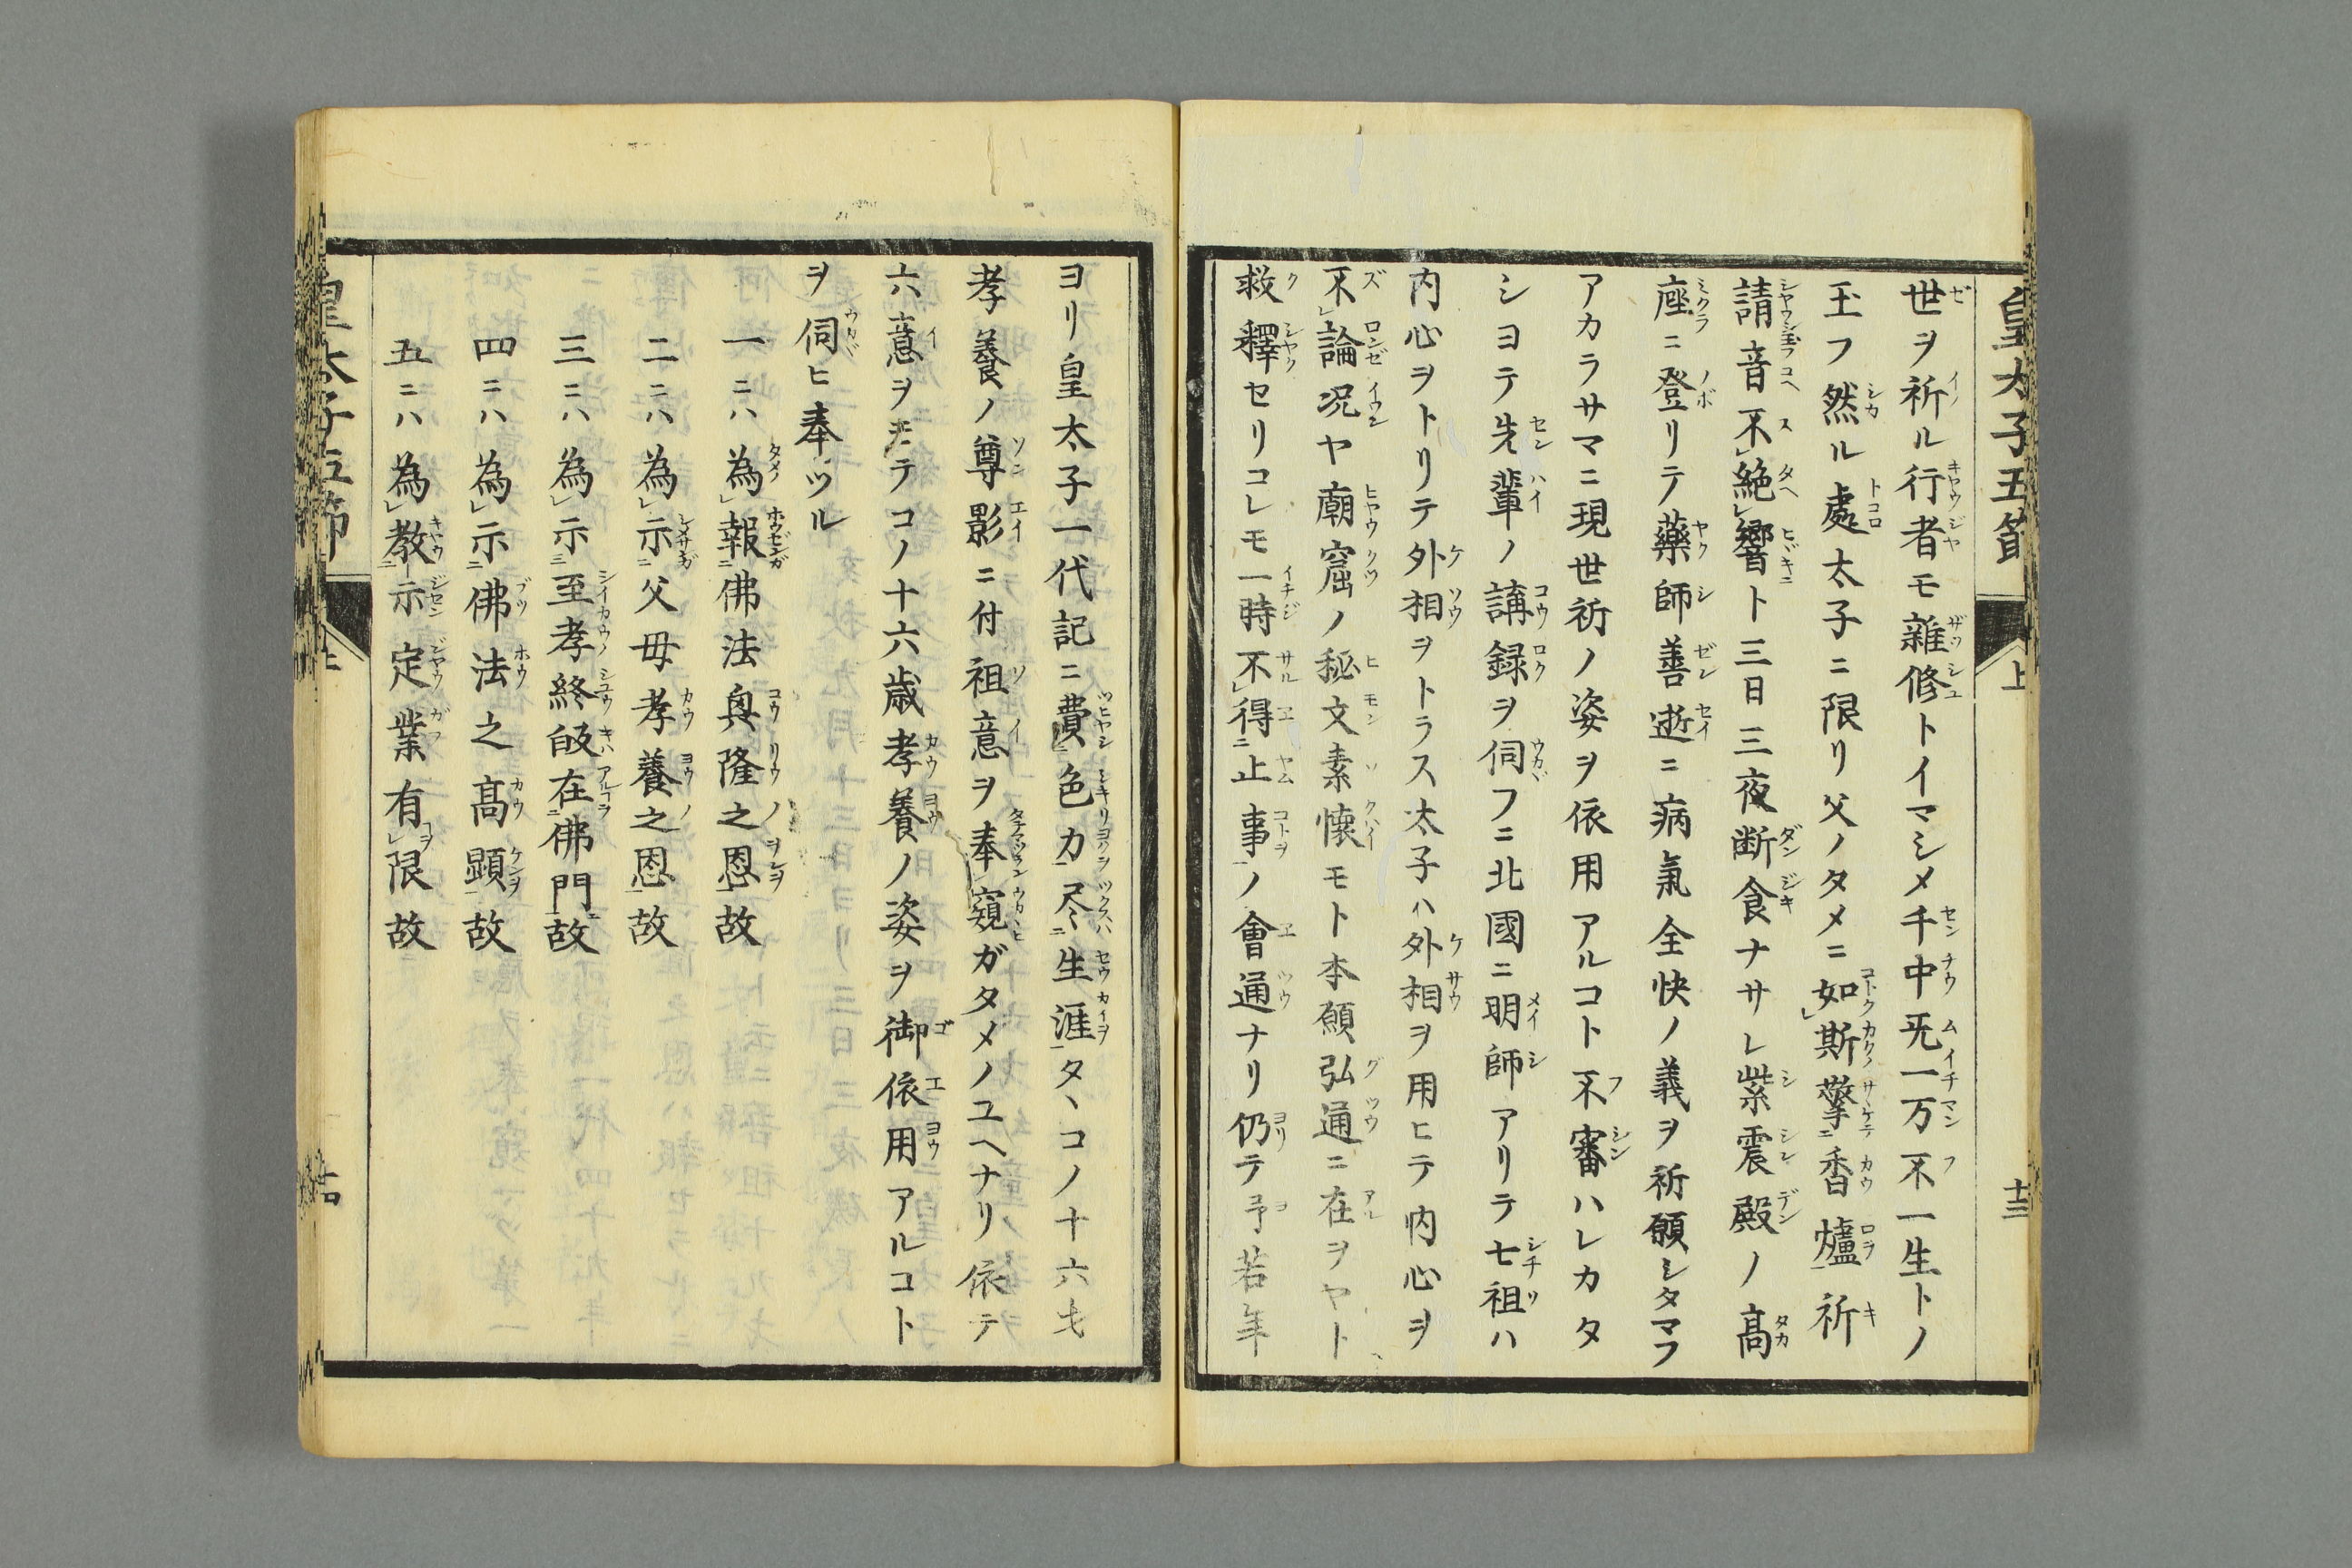 皇太子五節 上 十三
世ヲ祈ル行者モ雜修トイマシメ千中旡一万不一生トノ
玉フ然ル處太子ニ限リ父ノタメニ如斯擎香爐祈
請音不絶響ト三日三夜断食ナサレ紫震殿ノ高
座ニ登リテ藥師善逝ニ病氣全快ノ義ヲ祈願シタマフ
アカラサマニ現世祈ノ姿ヲ依用アルコト不審ハレカタ
シヨテ先輩ノ講録ヲ伺フニ北國ニ明師アリテ七祖ハ
内心ヲトリテ外相ヲトラス太子ハ外相ヲ用ヒテ内心ヲ
不論况ヤ廟窟ノ秘文素懐モト本願弘通ニ在ヲヤト
救釋セリコレモ一時不得止事ノ會通ナリ仍テ予若年
ヨリ皇太子一代記ニ費色力尽生涯タヽコノ十六才
孝養ノ尊影ニ付祖意ヲ奉窺ガタメノユヘナリ依テ
六意ヲモテコノ十六歳孝養ノ姿ヲ御依用アルコト
ヲ伺ヒ奉ツル
一ニハ為報佛法興隆之恩故
二ニハ為示父母孝養之恩故
三ニハ為示至孝終皈在佛門故
四ニハ為示佛法之高顕故
五ニハ為教示定業有限故
皇太子五節 上 十四